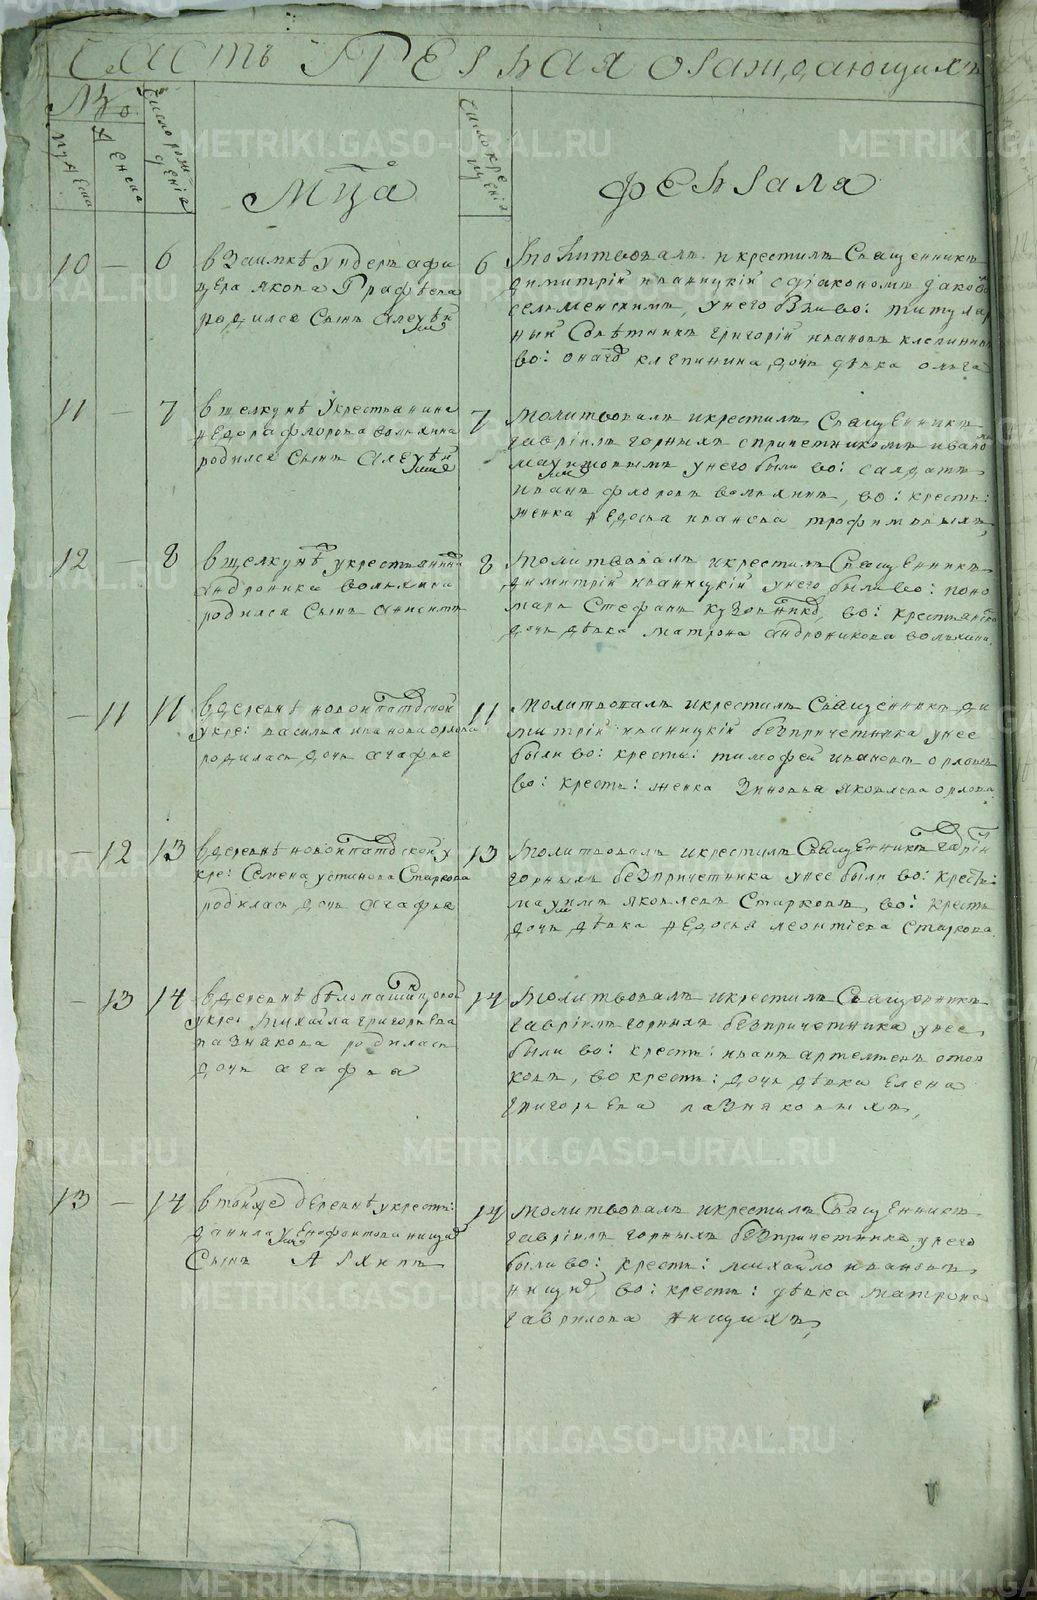 Часть Первая о раждающихся
№о
мужеска
женска
число рождения
число крещения
Мца
февраля
10 — 6
в Заимке ундеръ афи
цера Якова
родился сынъ Алеѯѣй
6
молитвовалъ и крестилъ Священникъ
димитрий иваницкий с диакономъ
сельменскимъ, у него были во: титуляр
ный Советникъ григорий ивановъ клепининъ
во: онаго клепинина дочь девка ольга
11 — 7
в щелкунѣ у крестьянина
федора флорова волхина
родился сынъ Алеѯѣй
7
молитвовалъ и крестилъ Священникъ
гавриилъ горныхъ с причетникомъ иваномъ
у него были во: салдатъ
иванъ флоровъ волхинъ, во: кресть:
женка федосья иванова трофимовыхъ
12 — 8
в щелкунѣ у крестьянина
андроника волхина
родился сынъ анисимъ
8
молитвовалъ и крестилъ Священникъ
димитрий иваницкий у него были во: поно
марь Стефанъ во: крестьянска
дочь девка матрона андроникова волхина
— 11 11
в деревнѣ новоипатовской
у кре: василья иванова орлова
родилась дочь агафья
11
молитвовалъ и крестилъ Священникъ ди
митрий иваницкий безъ причетника у нее
были во: кресть: тимофей ивановъ орловъ
во: кресть: женка Зиновья яковлева орлова
— 12 13
в деревнѣ новоипатовской у
кре: Семена устинова Старкова
родилась дочь агафья
13
молитвовалъ и крестилъ Священникъ гаврiилъ
горныхъ безъ причетника у нее были во: кресть:
маѯимъ яковлевъ Старковъ, во: кресть
дочь девка федосья леонтиева Старкова
— 13 14
в деревнѣ белопашинцовой
у кре: михайла григорьева
пазнякова родилась
дочь агафья
14
молитвовалъ и крестилъ Священникъ
гавриилъ горныхъ безъ причетника у нее
были во: кресть: иванъ артемьевъ
во кресть: дочь девка елена
григорьева пазняковыхъ,
13 — 14
в той же деревнѣ у кресть:
данила ѯенофонтова
сынъ Архипъ
14
молитвовалъ и крестилъ Священникъ
гавриилъ горныхъ безъ причетника у него
были во: кресть: михайло ивановъ
во: кресть: девка матрона
гаврилова